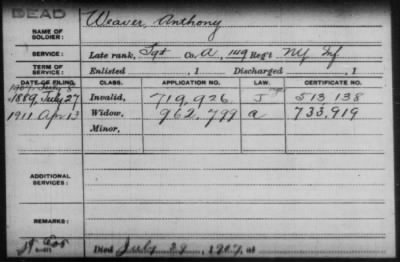 DEAD
NAME OF SOLDIER: Weaver, Anthony
SERVICE: Late rank, Sgt Co. A, 149 Reg't NY Inf
TERM OF SERVICE: Enlisted , 1 Discharged , 1
DATE OF FILING. CLASS. APPLICATION NO. LAW. CERTIFICATE NO.
1907, July 8
1889, July 27 Invalid, 719,926 J 513,138
1911 Apr 13 Widow, 962,799 a 733,919
Minor,
ADDITIONAL SERVICES:
REMARKS:
Died July 29, 1907, at